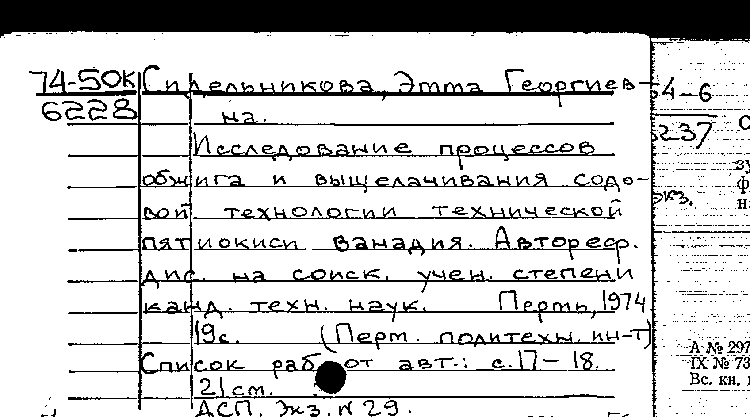 74-50к Сидельникова, Этта Георгиев-
6228 на.
Исследование процессов
обжига и выщелачивания содо-
вой технологии технической
пятиокиси ванадия. Автореф.
дис. на соиск. учен. степени
канд. техн. наук. Пермь, 1974
19с. (Перм. политехн. ин-т)
Список работ авт.: с.17-18
21см.
АСП. Экз. N 29.
54-6
5237
экз.
А № 297
IX № 73
Вс. кн.